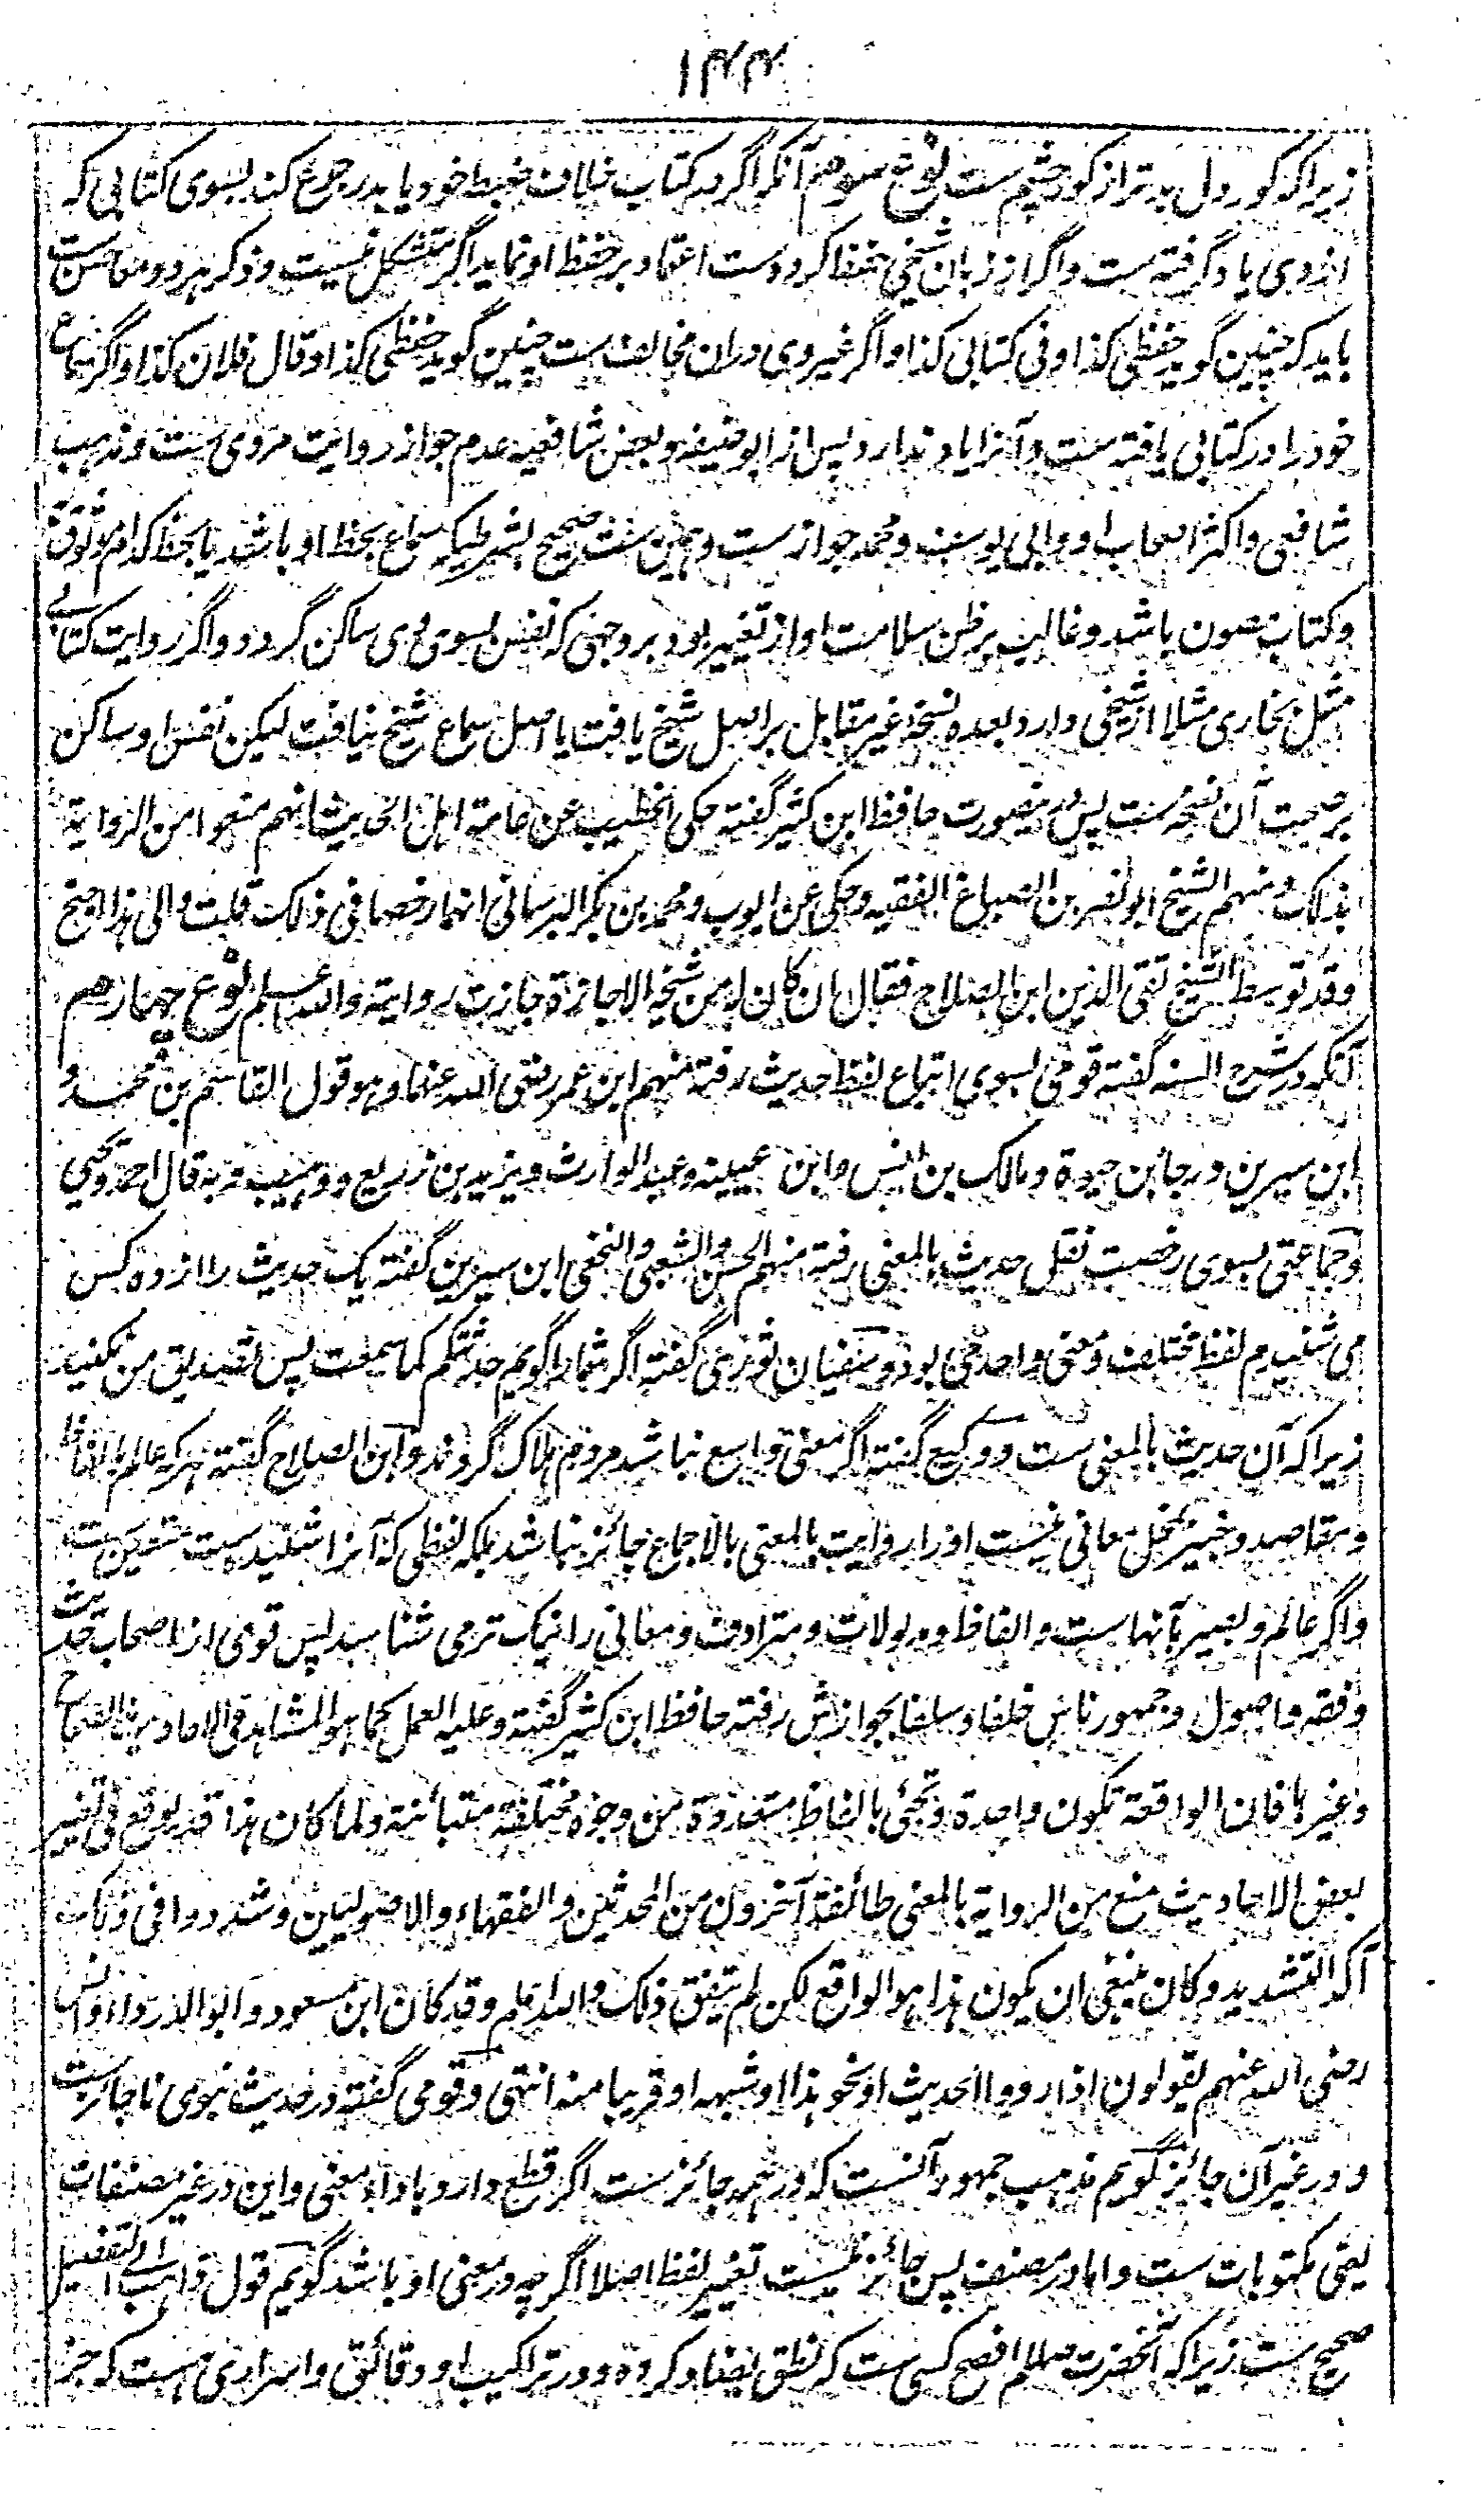 ۱۴۴
زیراکه کور دل بدتر از کور چشم ست نوع سوم آنکه اگر در کتاب خلاف ضبط خود یابد رجوع کند بسوی کتابی که
از وی یاد گرفته ست و اگر از زبان شیخی حفظ کرده ست اعتماد بر حفظ او نماید اگر متشکک نیست و ذکر هر دو معا حسن ست
باید که چنین گوید حفظی کذا و فی کتابی کذا و اگر غیر وی دران مخالف ست چنین گوید حفظی کذا و قال فلان کذا و اگر سماع
خود را در کتابی یافته ست و آنرا یاد ندارد پس از ابو حنیفه و بعض شافعیه عدم جواز روایت مروی ست و مذهب
شافعی و اکثر اصحاب او و ابی یوسف و محمد جواز ست و همین ست صحیح بشرطیکه سماع بخط او باشد یا بخط کدام موثوق به
و کتاب مصون باشد و غالب بر ظن سلامت او از تغییر بود بر وجهی که نفس بسوی وی ساکن گردد و اگر روایت کتابے
مثل بخاری مثلا از شیخی دارد بعده نسخه غیر مقابل بر اصل شیخ یافت یا اصل سماع شیخ نیافت لیکن نفس او ساکن
بر صحت آن نسخه ست پس درینصورت حافظ ابن کثیر گفته حکی الخطیب عن عامة اهل الحدیث انهم منعوا من الروایة
بذلک و منهم الشیخ ابو نصر بن الصباغ الفقیه و حکی عن ایوب و محمد بن بکر البرسانی انهما رخصا فی ذلک قلت و الی هذا اجنح
و قد توسط الشیخ تقی الدین ابن الصلاح فقال ان کان له من شیخه الاجازة جازت روایته و الله اعلم نوع چهارم
آنکه در شرح السنه گفته قومی بسوی اتباع لفظ حدیث رفته منهم ابن عمر رضی الله عنهما و هو قول القاسم بن محمد و
ابن سیرین و رجا بن حیوة و مالک بن انس و ابن عیینه و عبد الوارث و یزید بن زریع و وهیب و به قال احمد و یحیی
و جماعتی بسوی رخصت نقل حدیث بالمعنی رفته منهم الحسن و الشعبی و النخعی ابن سیرین گفته یک حدیث را از ده کس
می شنیدم لفظ مختلف و معنی واحد می بود و سفیان ثوری گفته اگر شما را گویم حدثتکم کما سمعت پس تصدیق من نکنید
زیراکه آن حدیث بالمعنی ست و وکیع گفته اگر معنی واسع نباشد مردم هلاک گردند و ابن الصلاح گفته هر که عالم بالفاظ
و مقاصد و خبیر بمحل معانی نیست او را روایت بالمعنی بالاجماع جائز نباشد بلکه لفظی که آنرا شنیده ست متعین ست
و اگر عالم و بصیر بآنهاست و الفاظ و مدلولات و مترادف و معانی را نیک تر می شناسد پس قومی از اصحاب حدیث
و فقه و اصول و جمهور ناس خلفا و سلفا بجوازش رفته حافظ ابن کثیر گفته و علیه العمل کما هو المشاهد فی الاحادیث الصحاح
و غیرها فان الواقعة تکون واحدة و تجئ بالفاظ متعددة من وجوه مختلفة متبائنة و لما کان هذا قد یوقع فی تغییر
بعض الاحادیث منع من الروایة بالمعنی طائفة آخرون من المحدثین و الفقهاء و الاصولیین و شددوا فی ذلک
آکد التشدید و کان ینبغی ان یکون هذا هو الواقع لکن لم یتفق ذلک و الله اعلم و قد کان ابن مسعود و ابو الدرداء و انس
رضی الله عنهم یقولون اذا رووا الحدیث او نحو هذا او شبهه او قریبا منه انتهی و قومی گفته در حدیث نبوی ناجائز ست
و در غیر آن جائز گویم مذهب جمهور آنست که در همه جائز ست اگر قطع دارد باداء معنی و این در غیر مصنفات
یعنی مکتوبات ست و اما در مصنف پس جائز نیست تغییر لفظ اصلا اگر چه در معنی او باشد گویم قول ذاهب الی التفصیل
صحیح ست زیراکه آنحضرت صلعم افصح کسی ست که نطق بضاد کرده و در تراکیب او دقائق و اسراری هست که جز